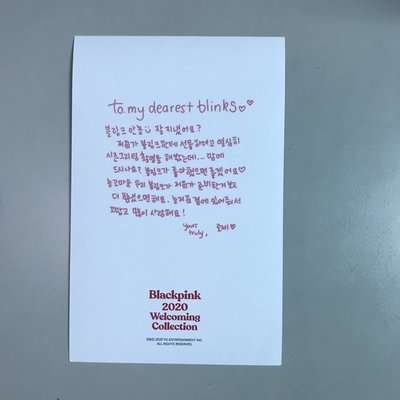 to. my dearest blinks♡♡
블링크 안농☺ 잘 지냈어요?
저희가 블링크한테 선물하려고 열심히
시즌그리팅 촬영을 해봤는데... 맘에
드시나요? 블링크가 좋아했으면 좋겠어요♡
늘 고마운 우리 블링크가 저희가 준비한거 보고
더 힘냈으면해요. 늘 저희 곁에 있어줘서
고맙고 많이 사랑해요!
yours truly, 로제♡
Blackpink
2020
Welcoming
Collection
©&℗ 2020 YG ENTERTAINMENT INC.
ALL RIGHTS RESERVED.